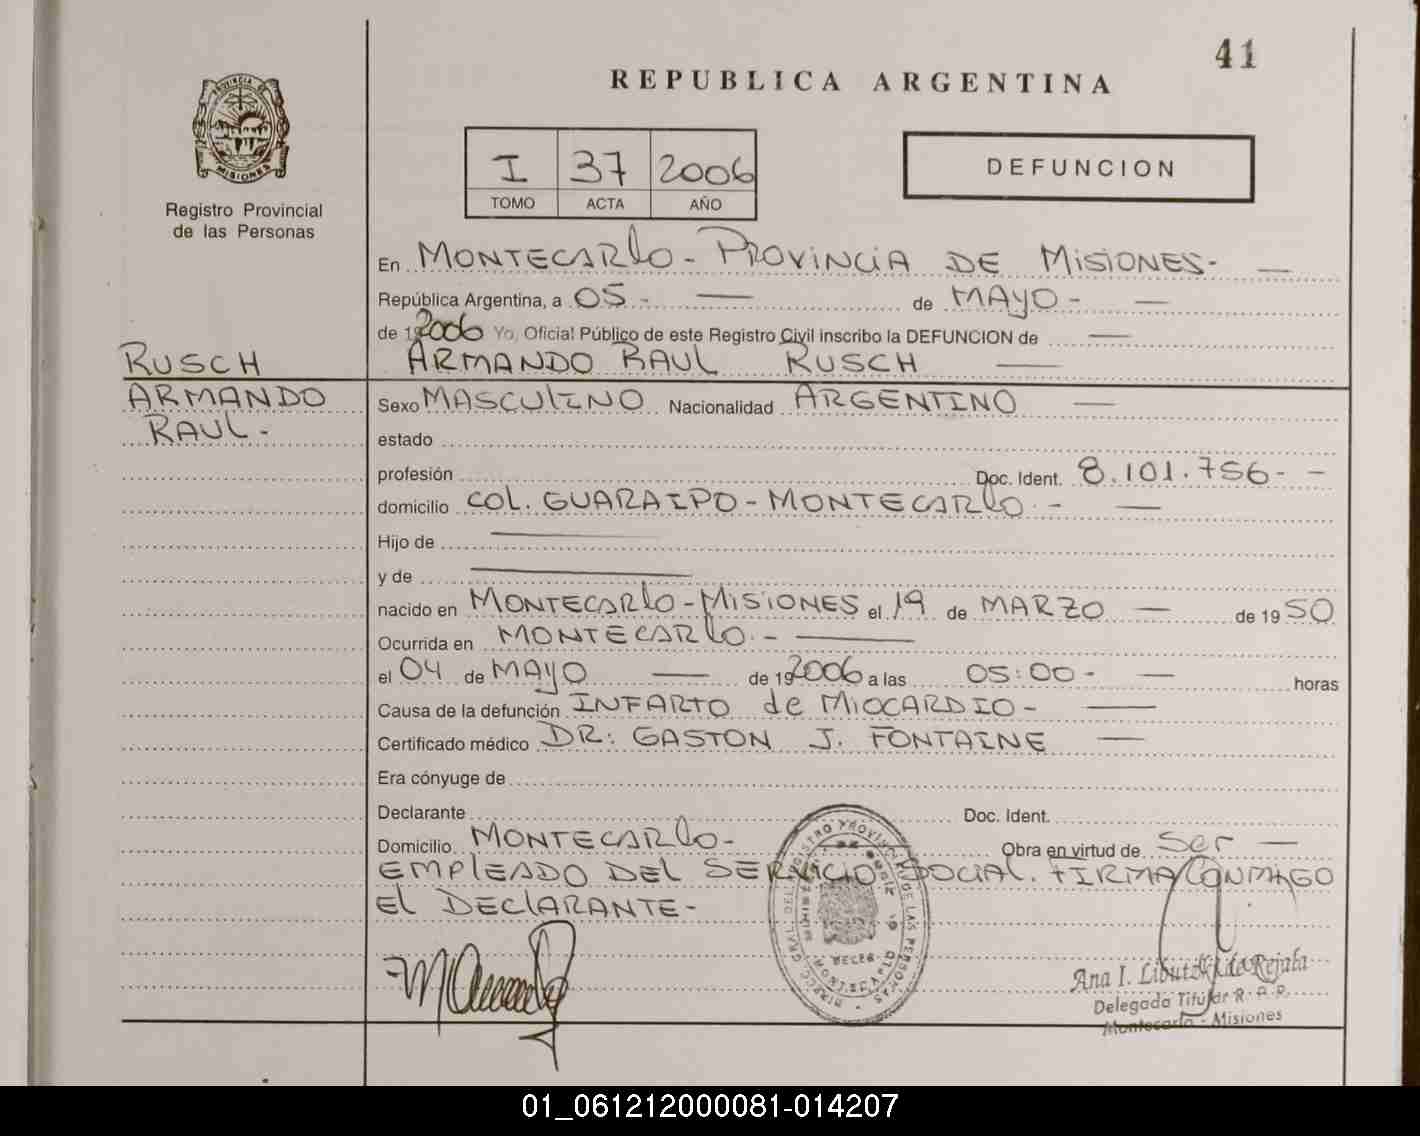 41
REPUBLICA ARGENTINA
PROVINCIA DE
MISIONES
Registro Provincial
de las Personas
I 37 2006
TOMO ACTA AÑO
DEFUNCION
En MONTECARLO - PROVINCIA DE MISIONES- —
República Argentina, a 05 - — de MAYO - —
de 192006 Yo, Oficial Público de este Registro Civil inscribo la DEFUNCION de —
RUSCH
ARMANDO
RAUL.-
ARMANDO RAUL RUSCH —
Sexo MASCULINO Nacionalidad ARGENTINO —
estado
profesión Doc. Ident. 8.101.756- -
domicilio COL. GUARAIPO - MONTECARLO.- —
Hijo de —
y de —
nacido en MONTECARLO - MISIONES el 19 de MARZO — de 1950
Ocurrida en MONTECARLO.- —
el 04 de MAYO — de 192006 a las 05:00- — horas
Causa de la defunción INFARTO de MIOCARDIO- —
Certificado médico DR: GASTON J. FONTAINE —
Era cónyuge de
Declarante Doc. Ident.
Domicilio MONTECARLO- Obra en virtud de Ser —
EMPLEADO DEL SERVICIO SOCIAL. FIRMA CONMIGO
EL DECLARANTE-
MONTECARLO
Ana I. de Rejala
Delegada Titular R. P. P.
Montecarlo - Misiones
01_061212000081-014207